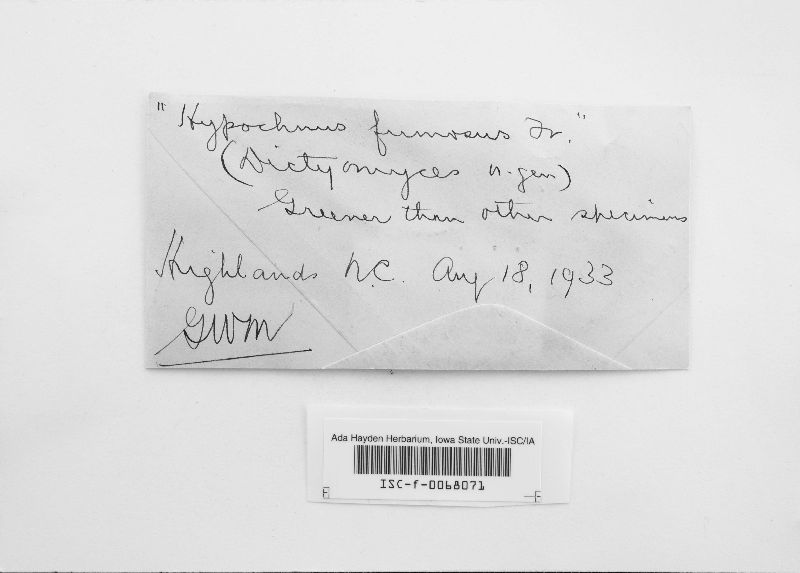 "Hypochnus fumosus Fr."
(Dictyomyces n. gen)
Greener than other specimens
Highlands N.C. Aug 18, 1933
GWM
Ada Hayden Herbarium, Iowa State Univ.-ISC/IA
ISC-f-0068071